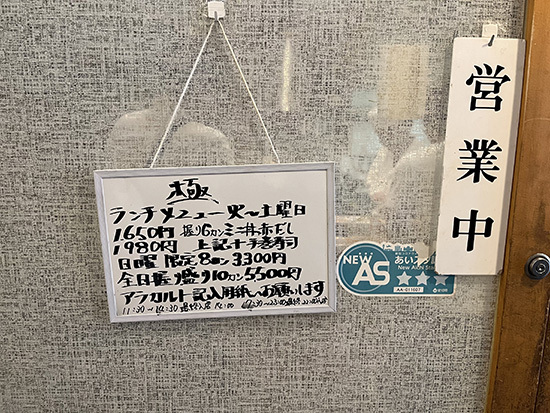 極
ランチメニュー火〜土曜日
1650円 握り6カンミニ丼赤だし
1980円 上記+手巻寿司
日曜限定8カン3300円
全日握り盛り10カン5500円
アラカルト記入用紙へお願いします
11:30〜14:30最終入店14:00
営業中
NEW
AS
あいち
New Aichi Sta
AA-011007